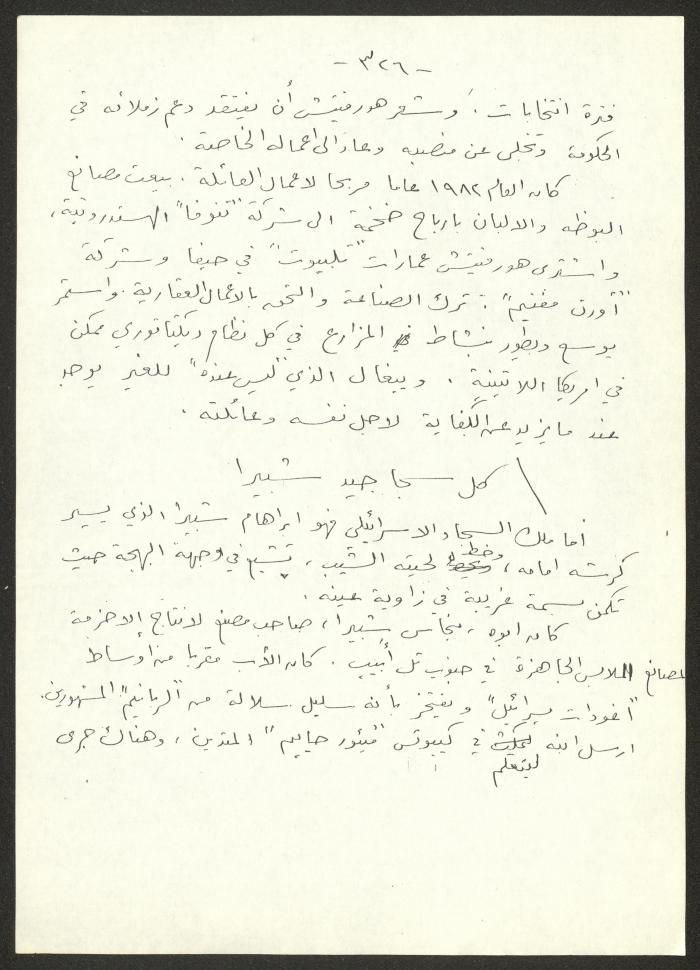 - ٣٢٦ -
فترة انتخابات. وشعر هورفيتش أن يفتقد دعم زملائه في
الحكومة وتخلى عن منصبه وعاد الى اعماله الخاصة.
كان العام ١٩٨٢ عاما مربحا لاعمال العائلة. بيعت مصانع
البوظه والالبان بارباح ضخمة الى شركة "تنوفا" الهستدروتية،
واشترى هورفيتش عمارات "تلبيوت" في حيفا وشركة
"أورن مفنيم". ترك الصناعة والتحق بالاعمال العقارية. واستمر
يوسع ويطور نشاط المزارع في كل نظام ديكتاتوري ممكن
في امريكا اللاتينية. ويبغال الذي "ليس عنده" للغير يوجد
عند ما يزيد عن الكفاية لاجل نفسه وعائلته.
كل سجاجيد شبيرا
أما ملك السجاد الاسرائيلي فهو ابراهام شبيرا الذي يسير
كرشه امامه، وخط لحيته الشيب، تشيع في وجهة البهجة حيث
تكمن بسمة غريبة في زاوية عينه.
كان ابوه، منحاس شبيرا، صاحب مصنع لانتاج الاحزمة
لمصانع الملابس الجاهزة في جنوب تل أبيب. كان الأب مقربا من أوساط
"اغودات يسرائيل" ويفتخر بأنه سليل سلالة من "الربانيم" المشهورين.
ارسل ابنه ليتعلم في كيبوتس "مئور حاييم" المتدين، وهناك جرى